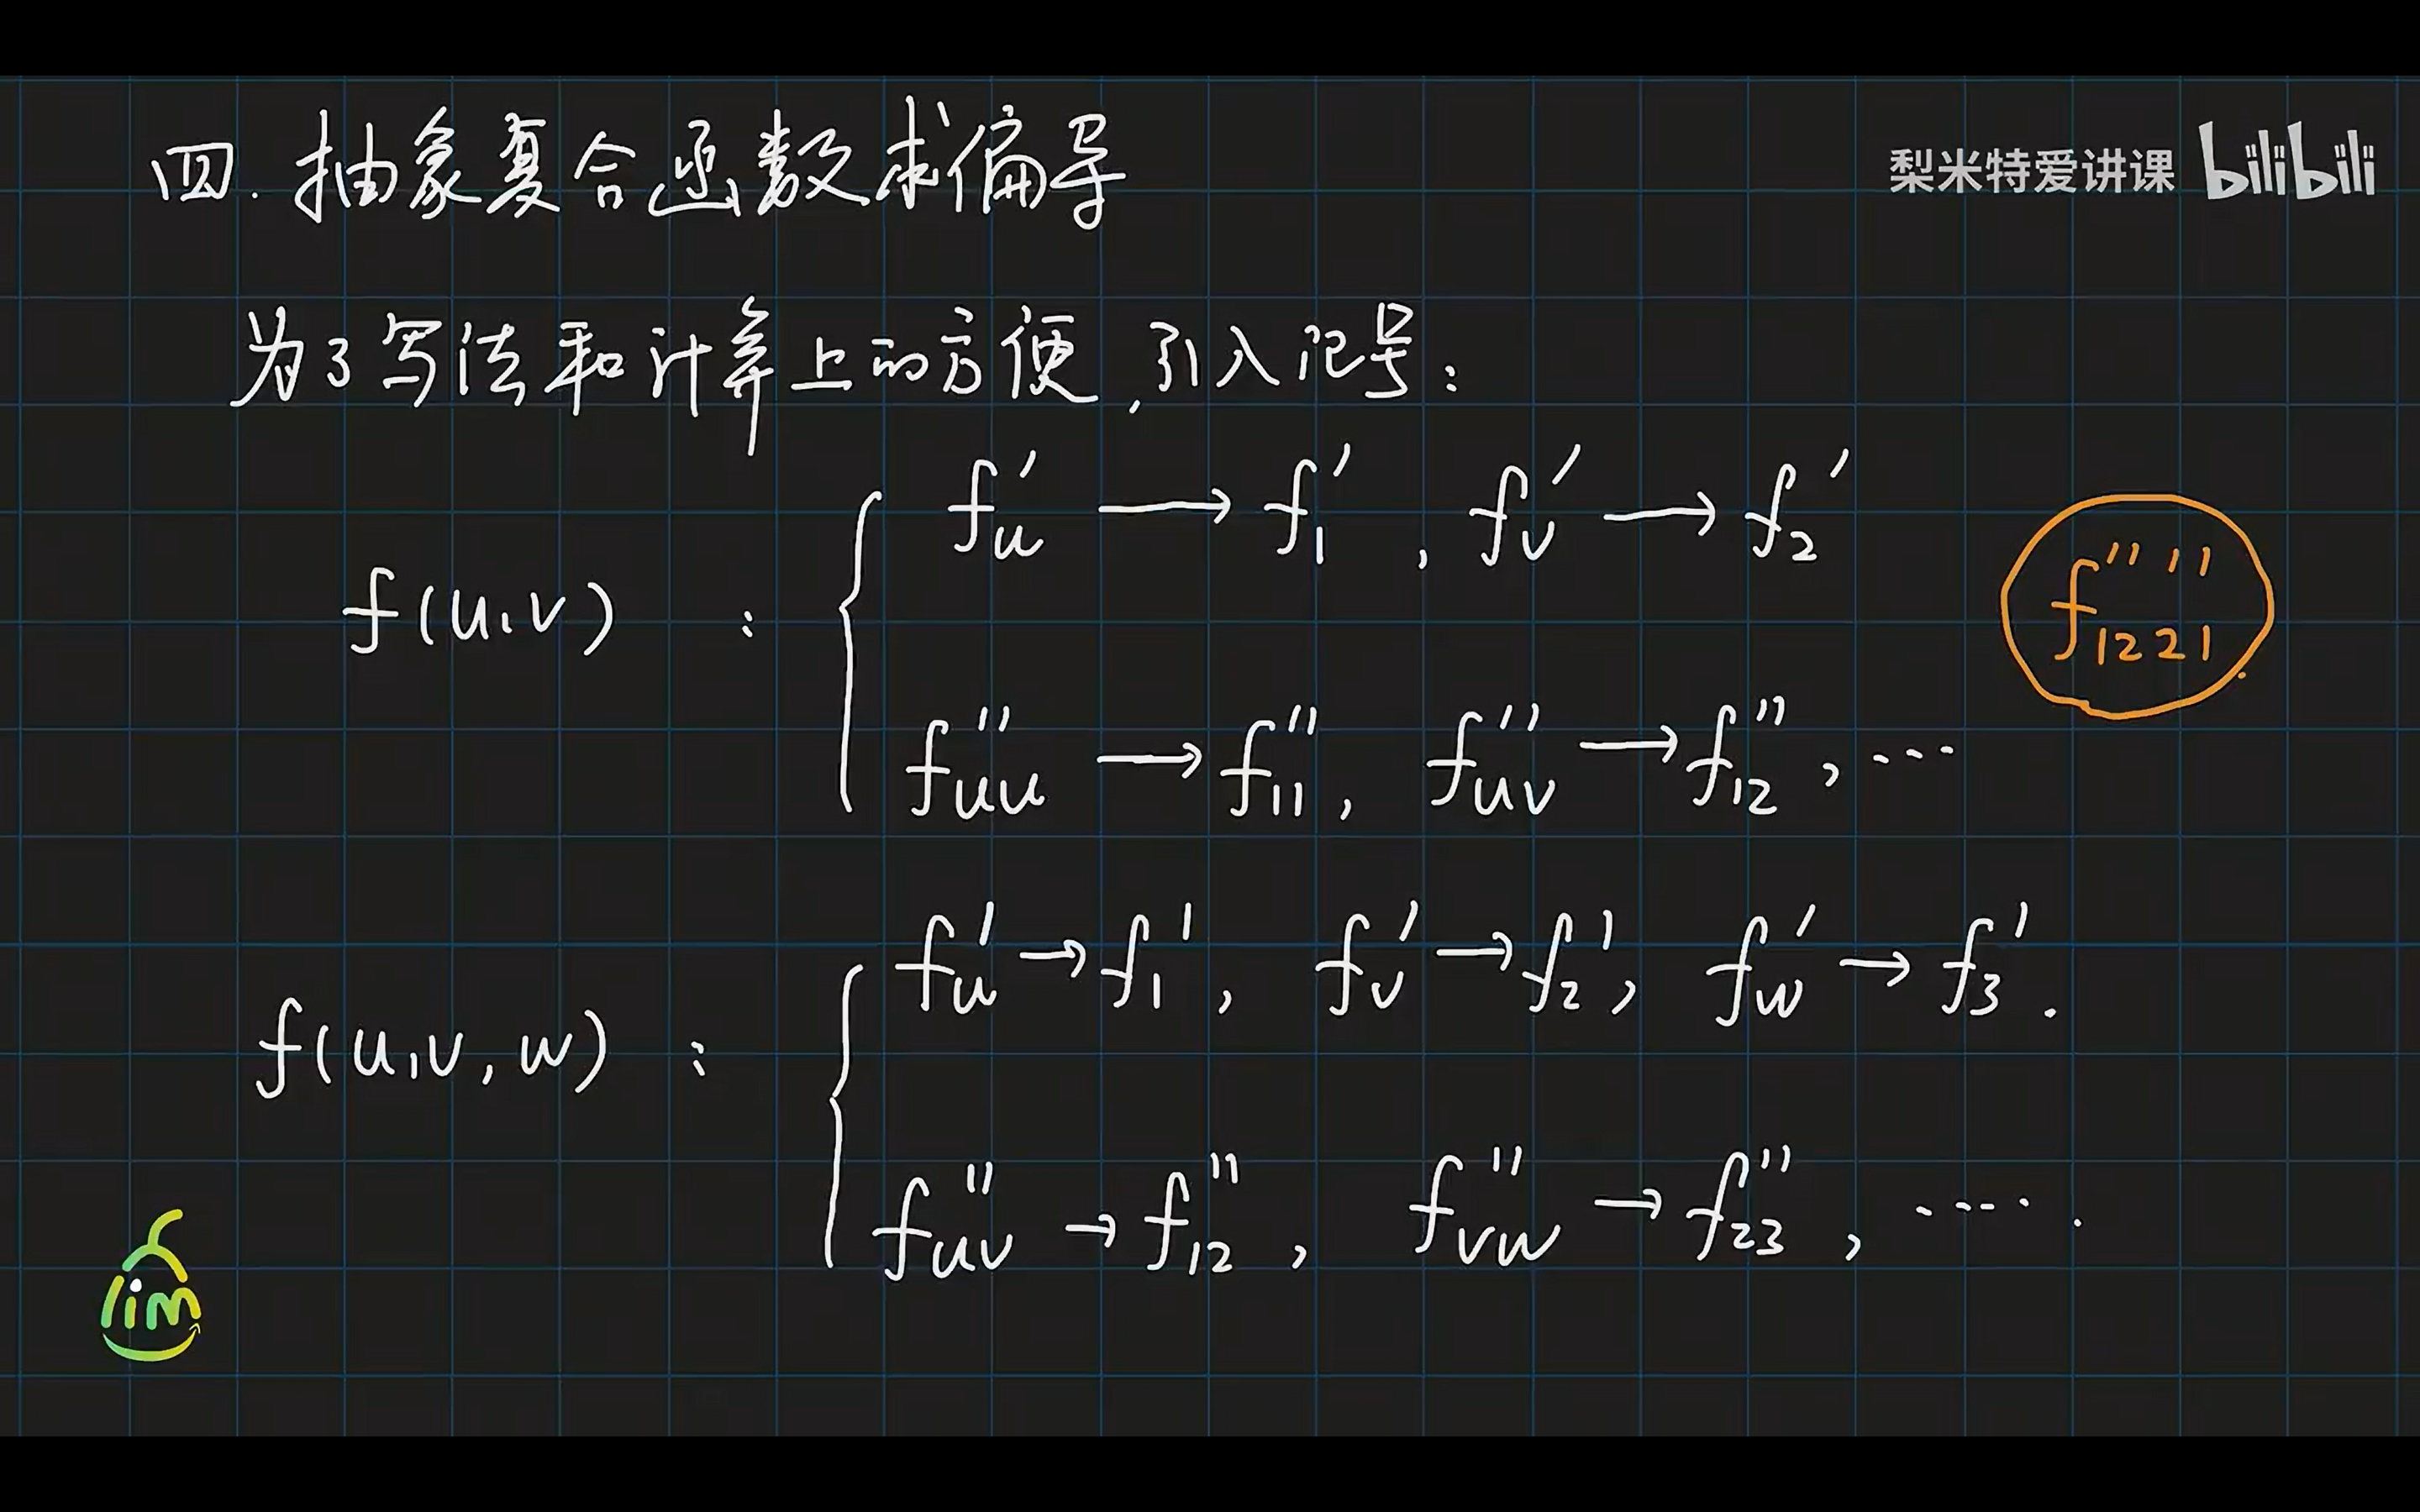 四. 抽象复合函数求偏导
梨米特爱讲课 bilibili
为了写法和计算上的方便,引入记号:
f(u,v) : { f'_u → f'_1 , f'_v → f'_2
f''''_{1221}
f''_{uu} → f''_{11} , f''_{uv} → f''_{12} , ...
f(u,v,w) : { f'_u → f'_1 , f'_v → f'_2 , f'_w → f'_3 .
f''_{uv} → f''_{12} , f''_{vw} → f''_{23} , .... .
lim